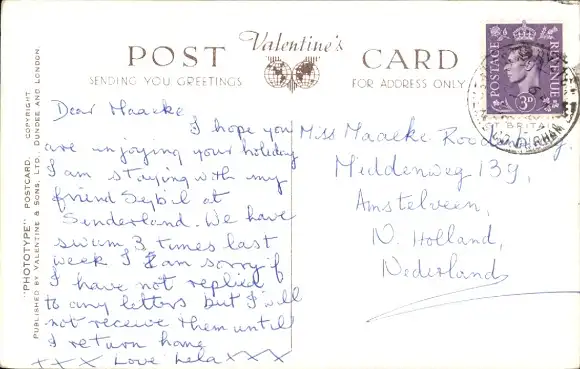 "PHOTOTYPE" POSTCARD. COPYRIGHT
PUBLISHED BY VALENTINE & SONS, LTD. DUNDEE AND LONDON.
POST Valentine's CARD
SENDING YOU GREETINGS
FOR ADDRESS ONLY
POSTAGE REVENUE
3D
Dear Maaeke
I hope you
are injoying your holiday
I am staying with my
friend Seybil at
Sunderland. We have
swum 3 times last
week I am sorry if
I have not replied
to any letters but I will
not receive them until
I return home
XXX Love Lela XXX
Miss Maaeke
Middenweg 139,
Amstelveen,
N. Holland,
Nederlands